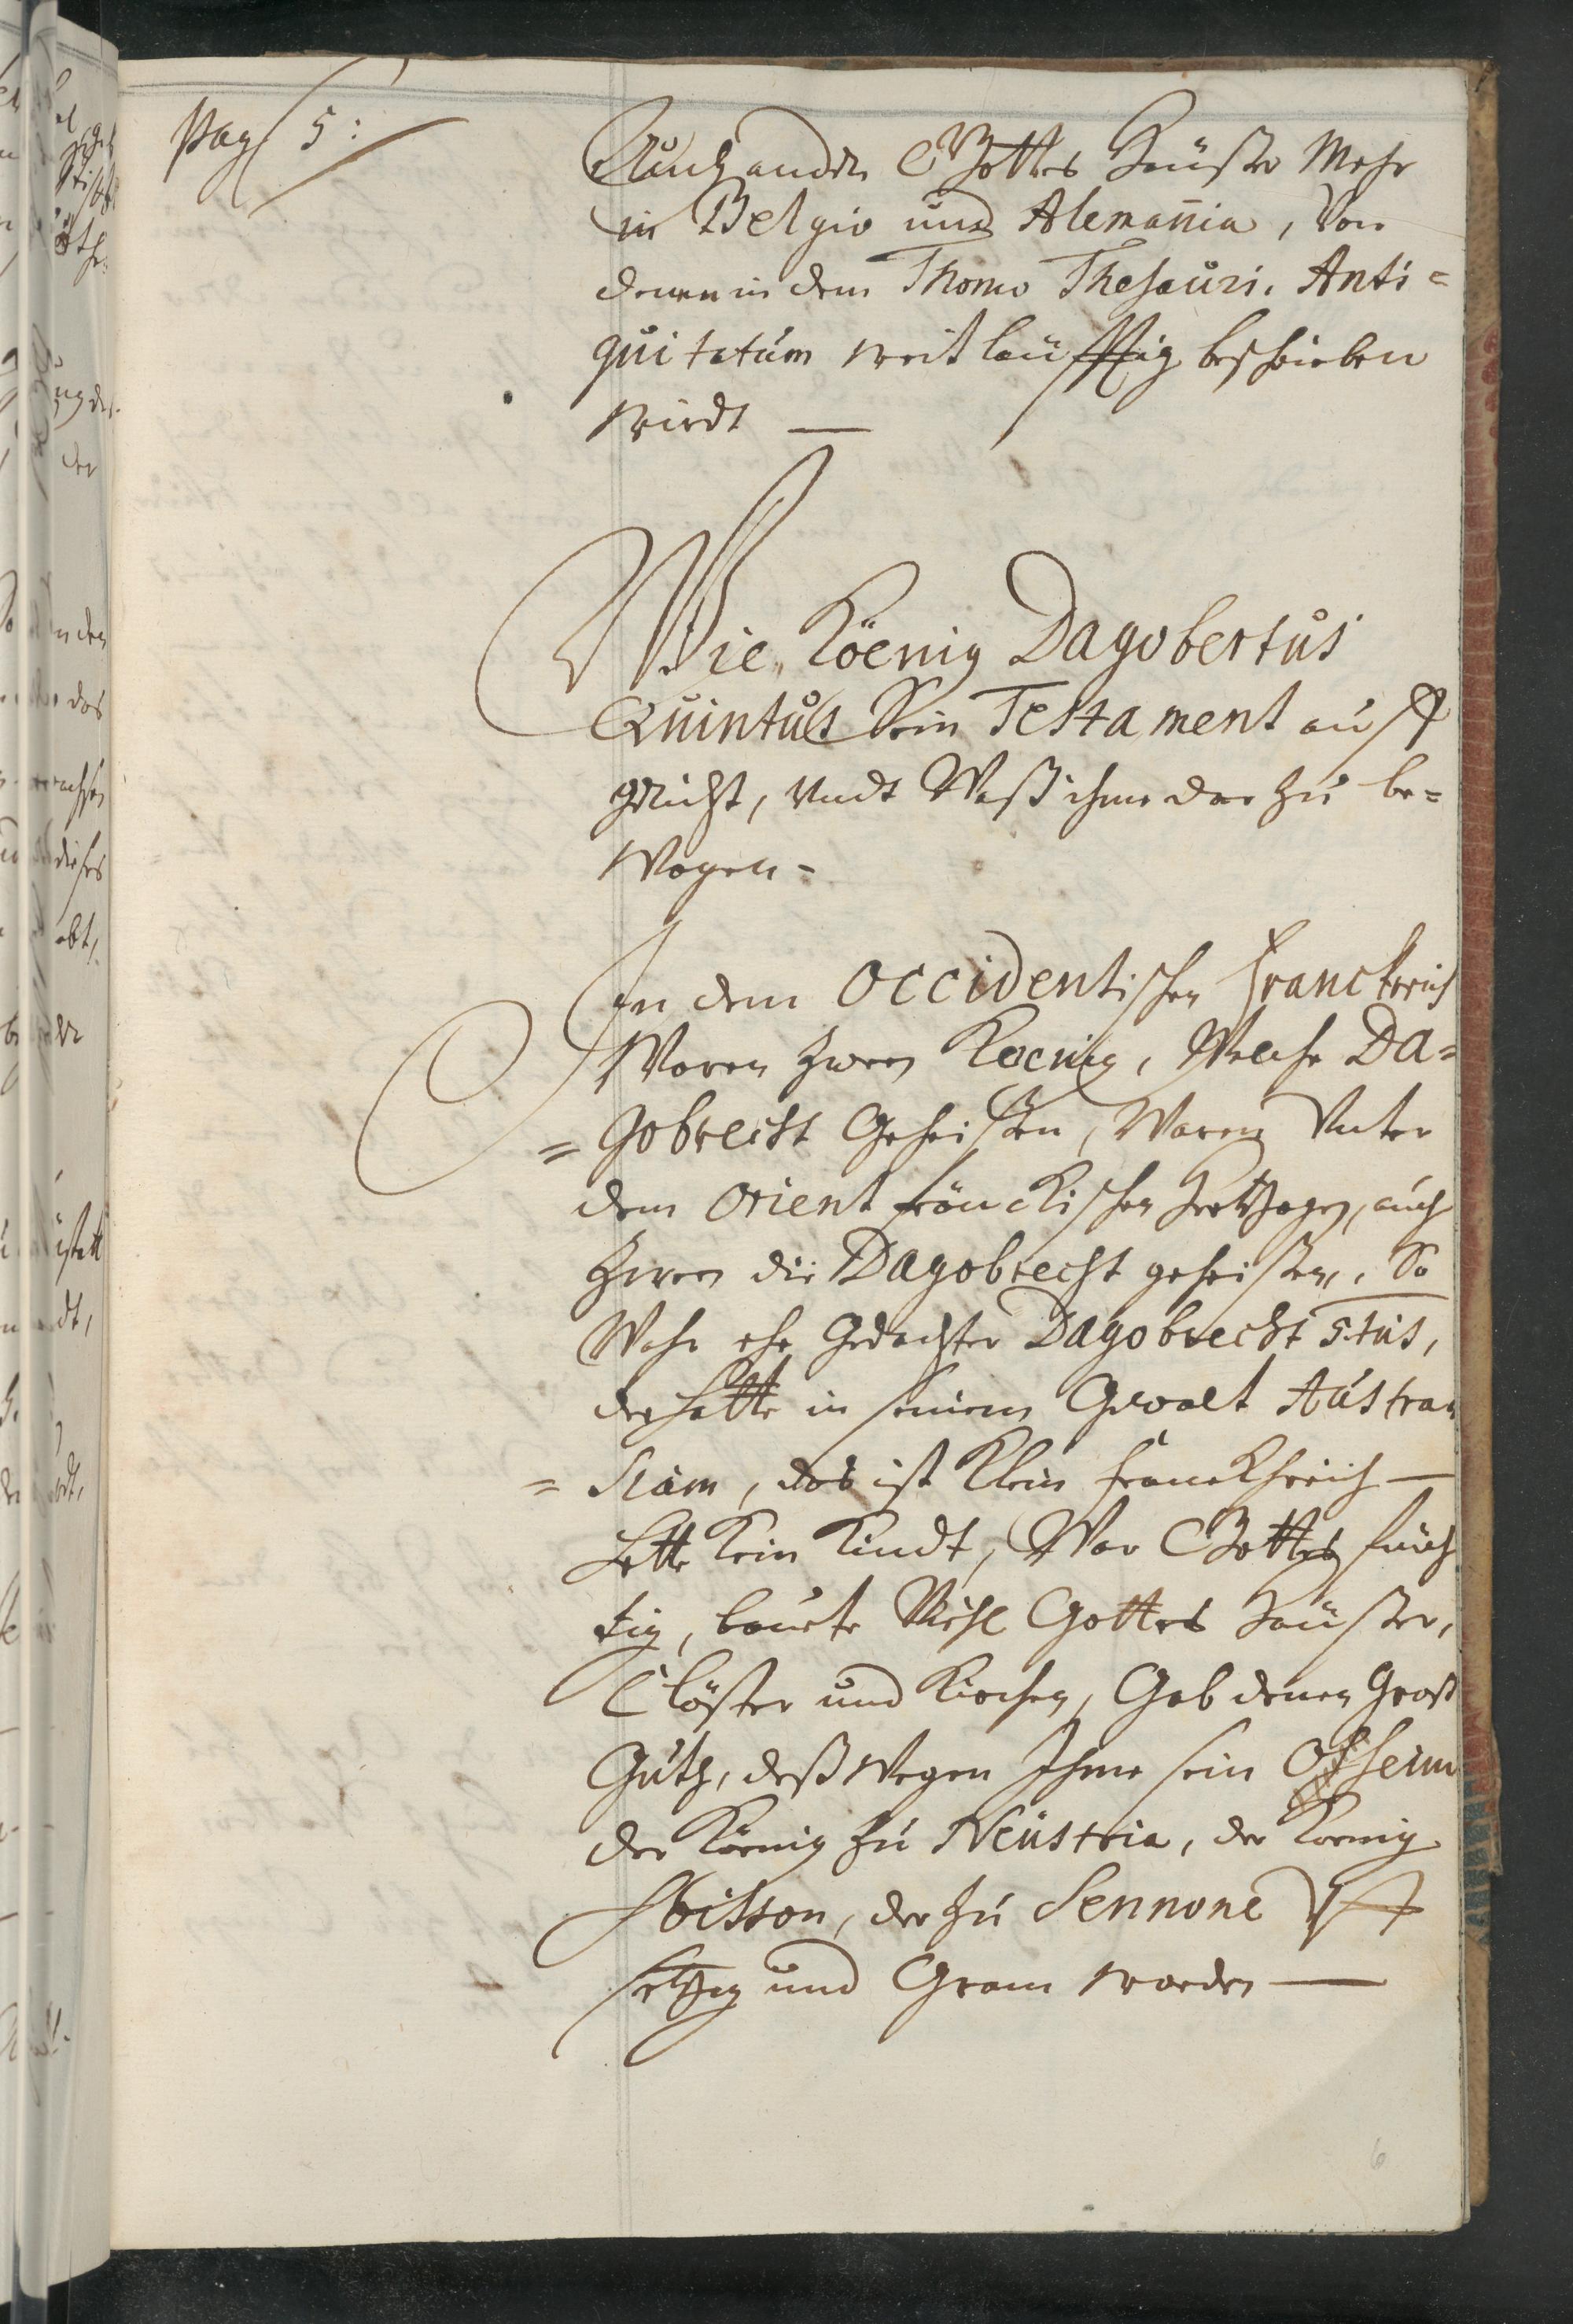 Pag 5:
Auch andere Gottes Heüßer Mehr
in Belgio und Alemañia, Von
denen in dem Thomo Thesauri. Anti=
quitatum weitläüffig beschrieben
wirdt —
Wie Köenig Dagobertus
Quintus Sein Testament auff
gericht, Undt Waß ihme dar zu be=
wogen =
In dem Occidentischen Franckreich
Waren zwen Koenig, Welche Da=
= gobrecht Geheißen, Waren Unter
dem Orient fränckischen Hertzogen, auch
zwen die Dagobrecht geheißen, So
Wahr ehe Gedachter Dagobrecht 5.tus,
der hatte in seinem Gewalt Austra
= siam, das ist Klein Franckhreich —
hette Kein Kindt, War Gottes fürch
tig, baurte Viehl Gottes Heüßer,
Clöster und Kirchen, Gab denen Groß
Guth, deßwegen Ihme sein Oheim
der Köenig zu Neustria, der Koenig
der zu Sennone
und Gram worden —
6